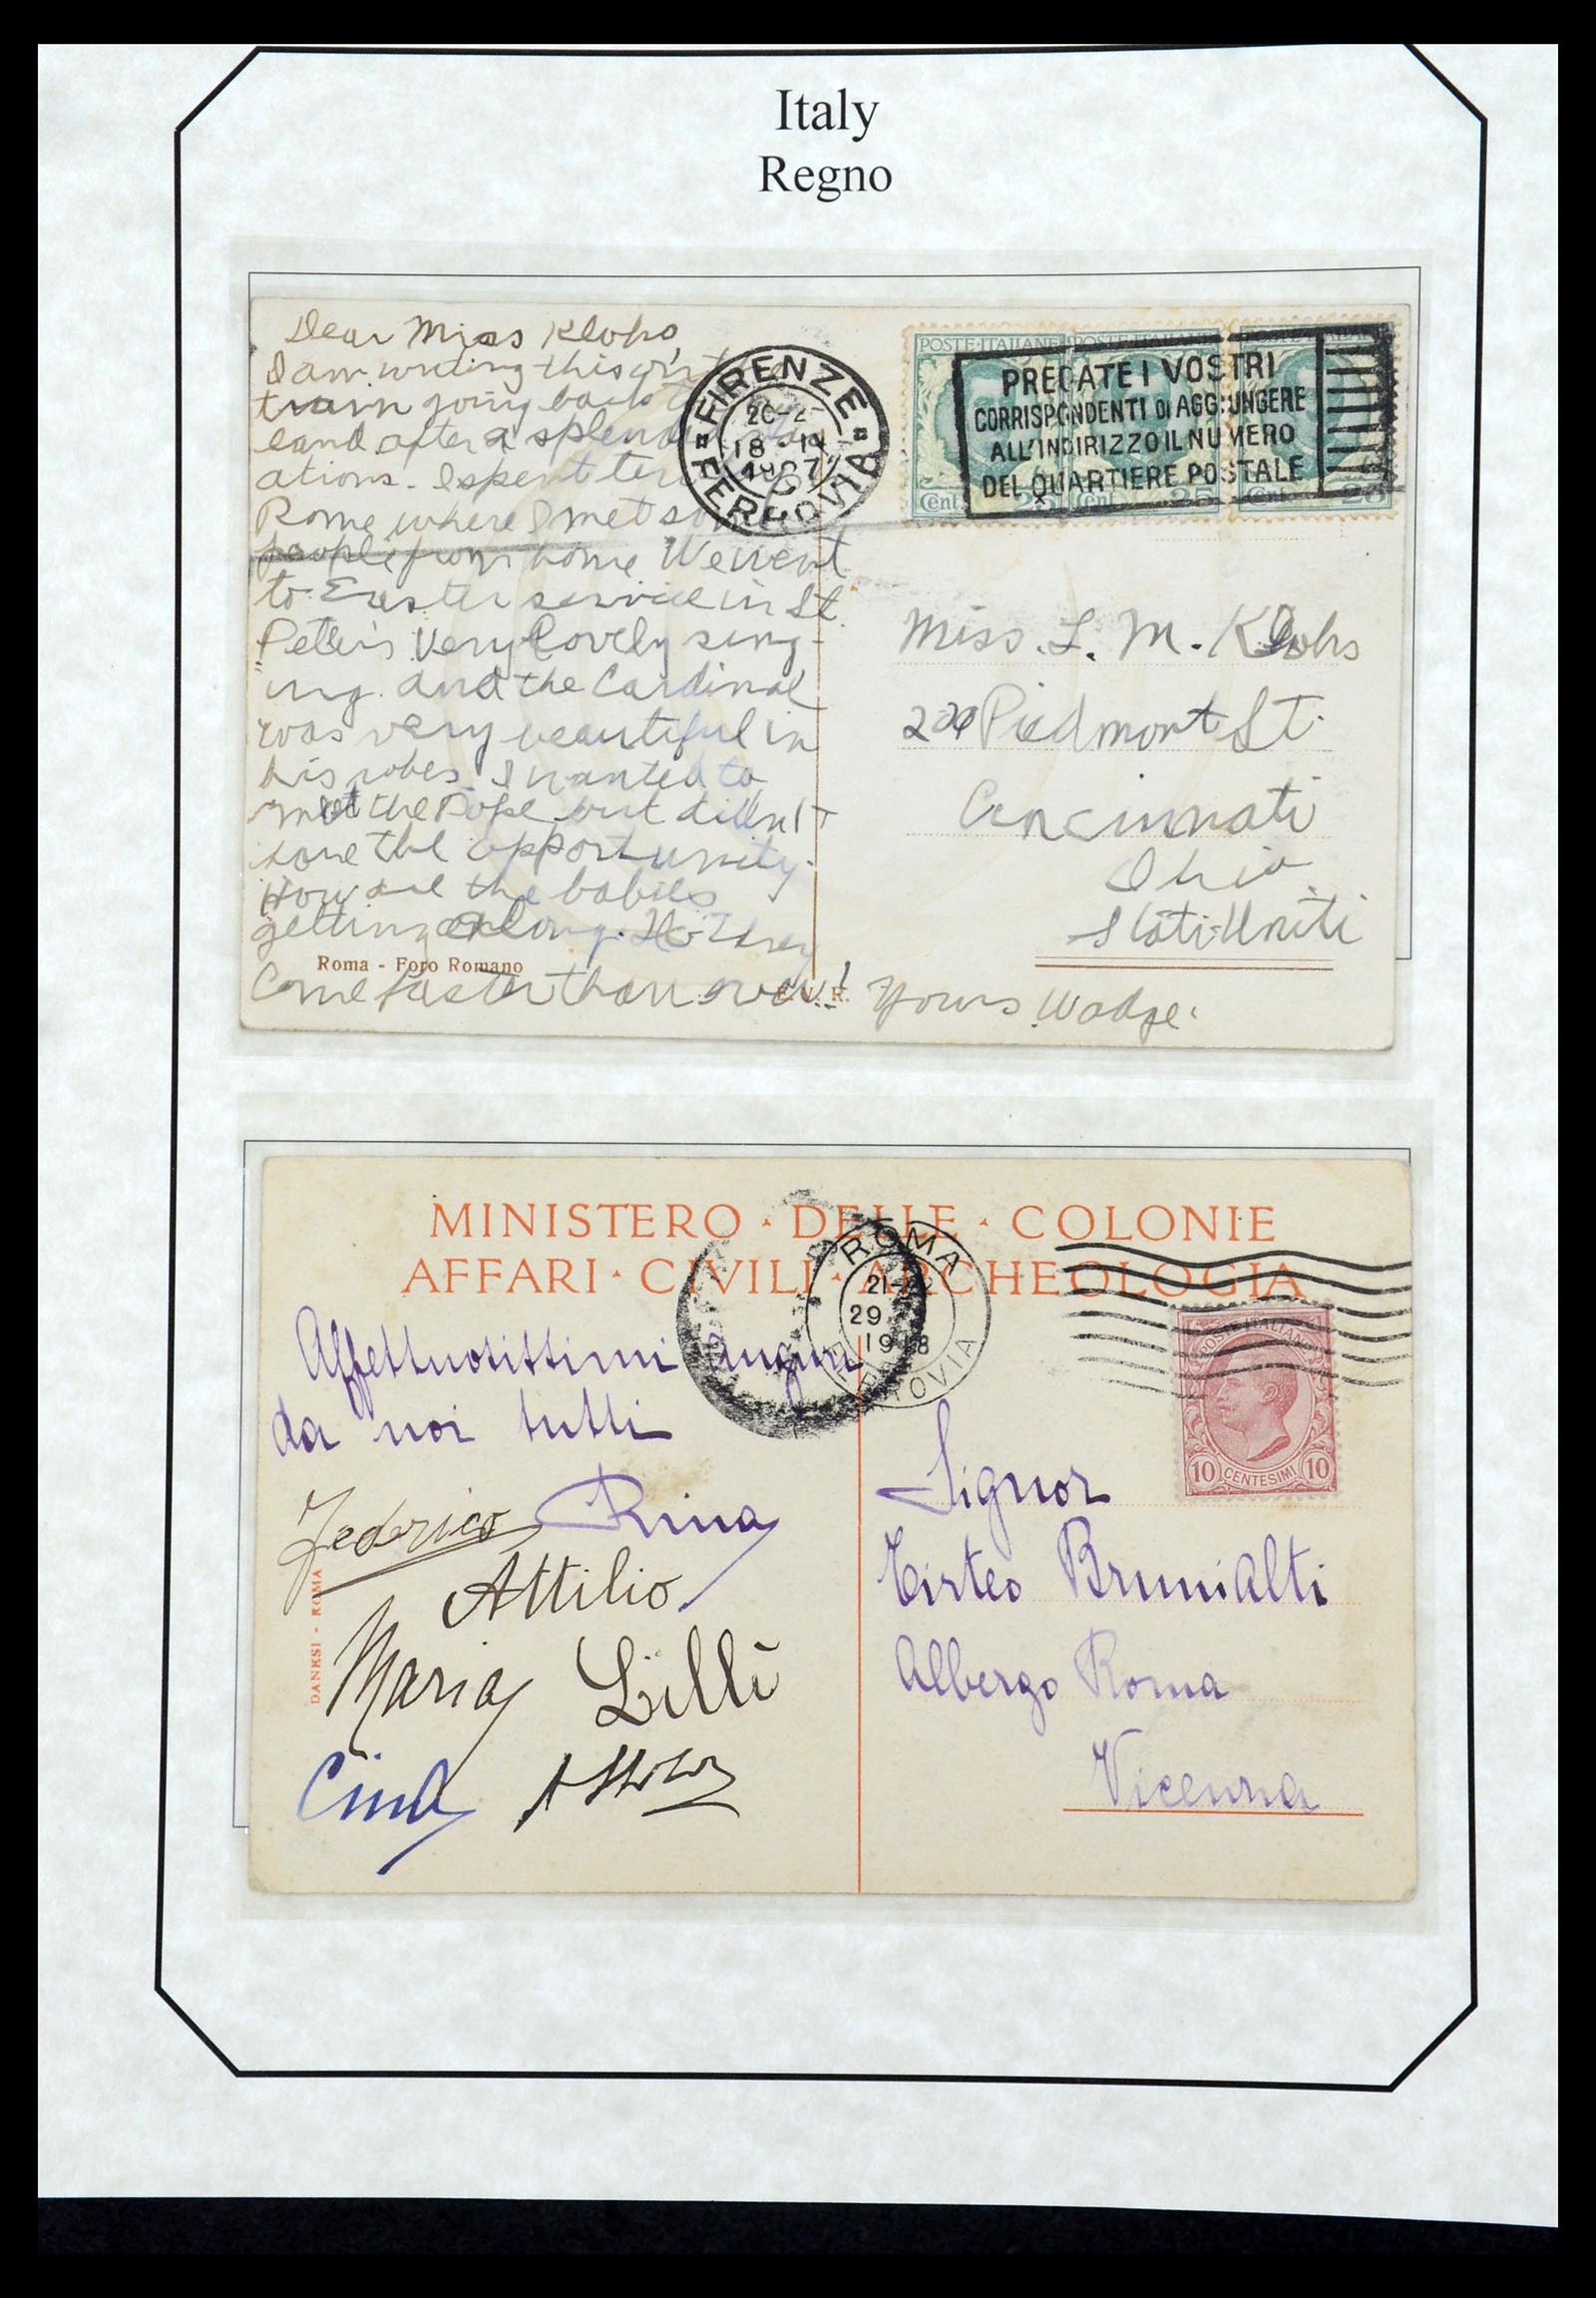 Italy
Regno
Dear Miss Klohs,
I am writing this on
train going back
land after a splendid
ations. I spent ten
Rome where I met some
people from home We went
to Easter service in St.
Peter's Very lovely sing-
ing. and the Cardinal
was very beautiful in
his robes. I wanted to
meet the Pope but didn't
have the opportunity.
How are the babies
getting along. Do they
Come faster than ever! Yours Madge.
Roma - Foro Romano
FIRENZE
20-2
18
FERROVIA
POSTE·ITALIANE POSTE·ITALIANE
Cent. 25 Cent. 25 Cent. 25
PREGATE I VOSTRI
CORRISPONDENTI DI AGGIUNGERE
ALL'INDIRIZZO IL NUMERO
DEL QUARTIERE POSTALE
Miss. L. M. Klohs
Piedmont St.
Cincinnati
Ohio
Stati-Uniti
MINISTERO · DELLE · COLONIE
AFFARI · CIVILI · ARCHEOLOGIA
ROMA
21-22
29
1918
FERROVIA
POSTE ITALIANE
10 CENTESIMI 10
Affettuosissimi auguri
da noi tutti
Federico Rina
Attilio
Maria Lilli
Cina
DANESI - ROMA
Signor
Tirteo Brunialti
Albergo Roma
Vicenza